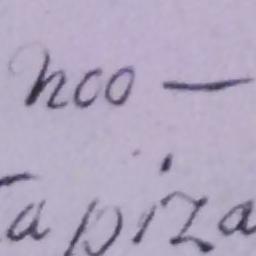 hco —
apiza